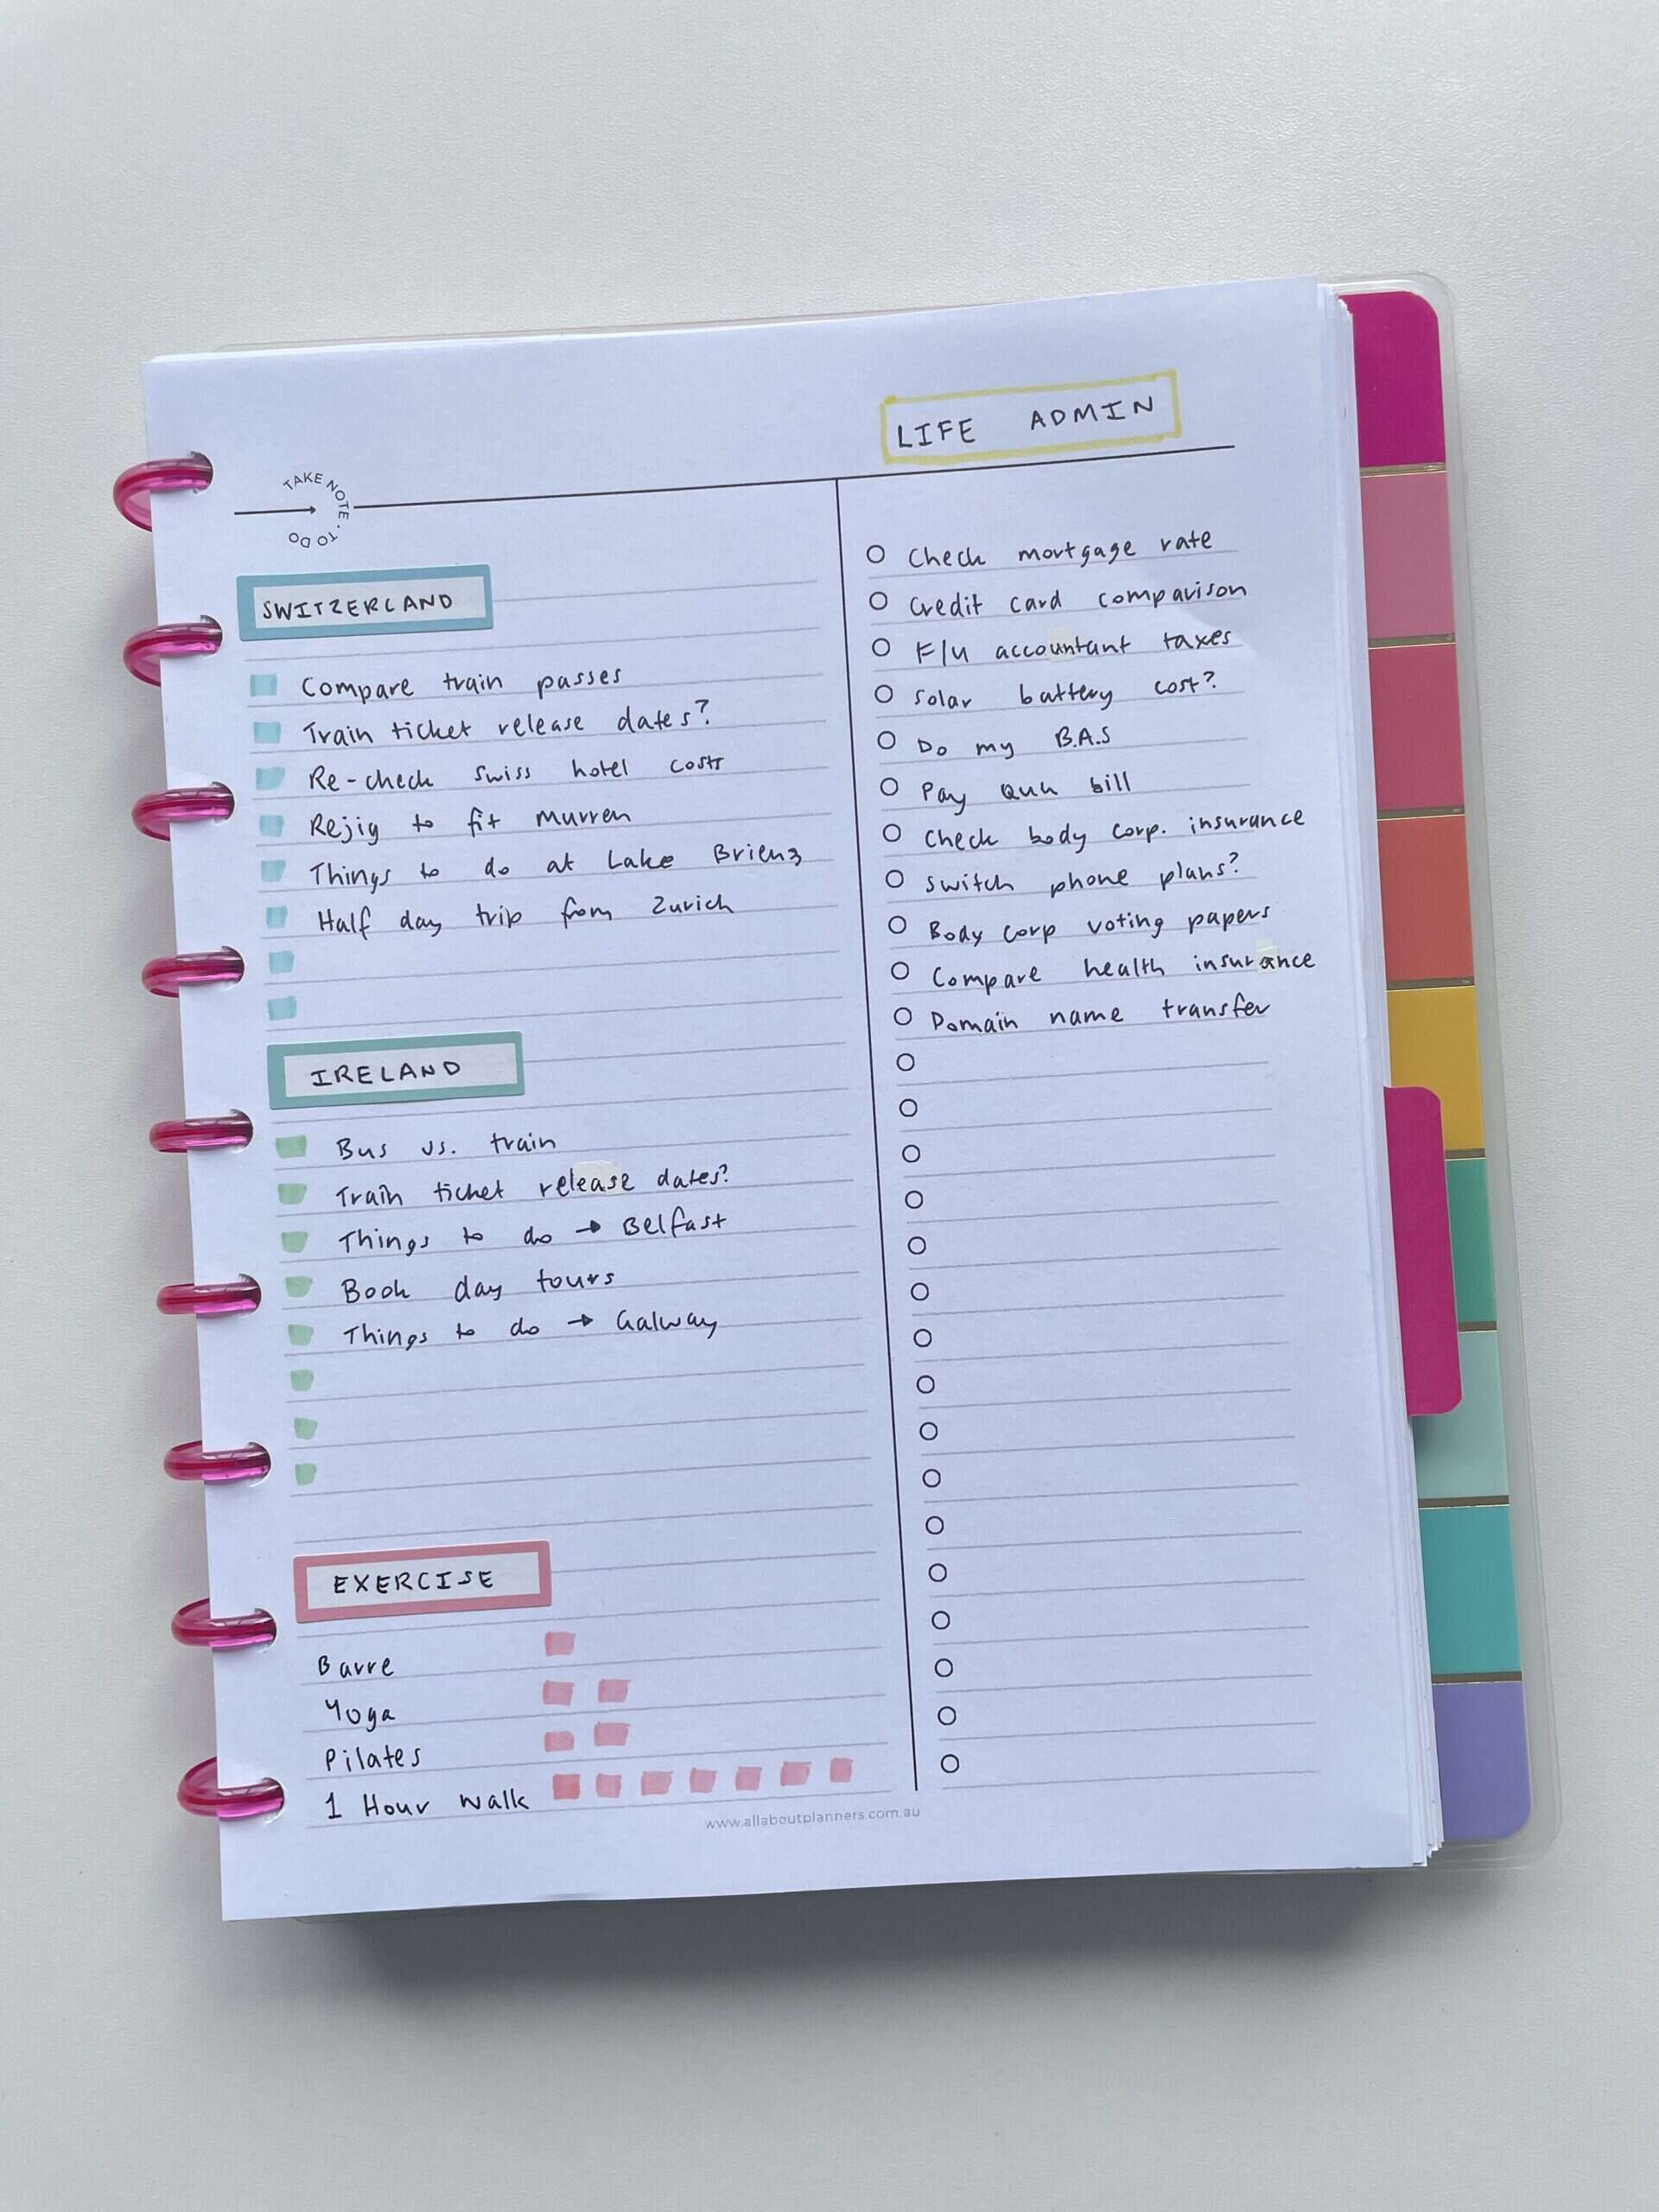 LIFE ADMIN
TAKE NOTE · TO DO
SWITZERLAND
Compare train passes
Train ticket release dates?
Re-check swiss hotel costs
Rejig to fit Murren
Things to do at Lake Brienz
Half day trip from Zurich
IRELAND
Bus vs. train
Train ticket release dates?
Things to do → Belfast
Book day tours
Things to do → Galway
EXERCISE
Barre
Yoga
Pilates
1 Hour walk
Check mortgage rate
Credit card comparison
F/U accountant taxes
Solar battery cost?
Do my B.A.S
Pay bill
Check body corp. insurance
Switch phone plans?
Body corp voting papers
Compare health insurance
Domain name transfer
www.allaboutplanners.com.au